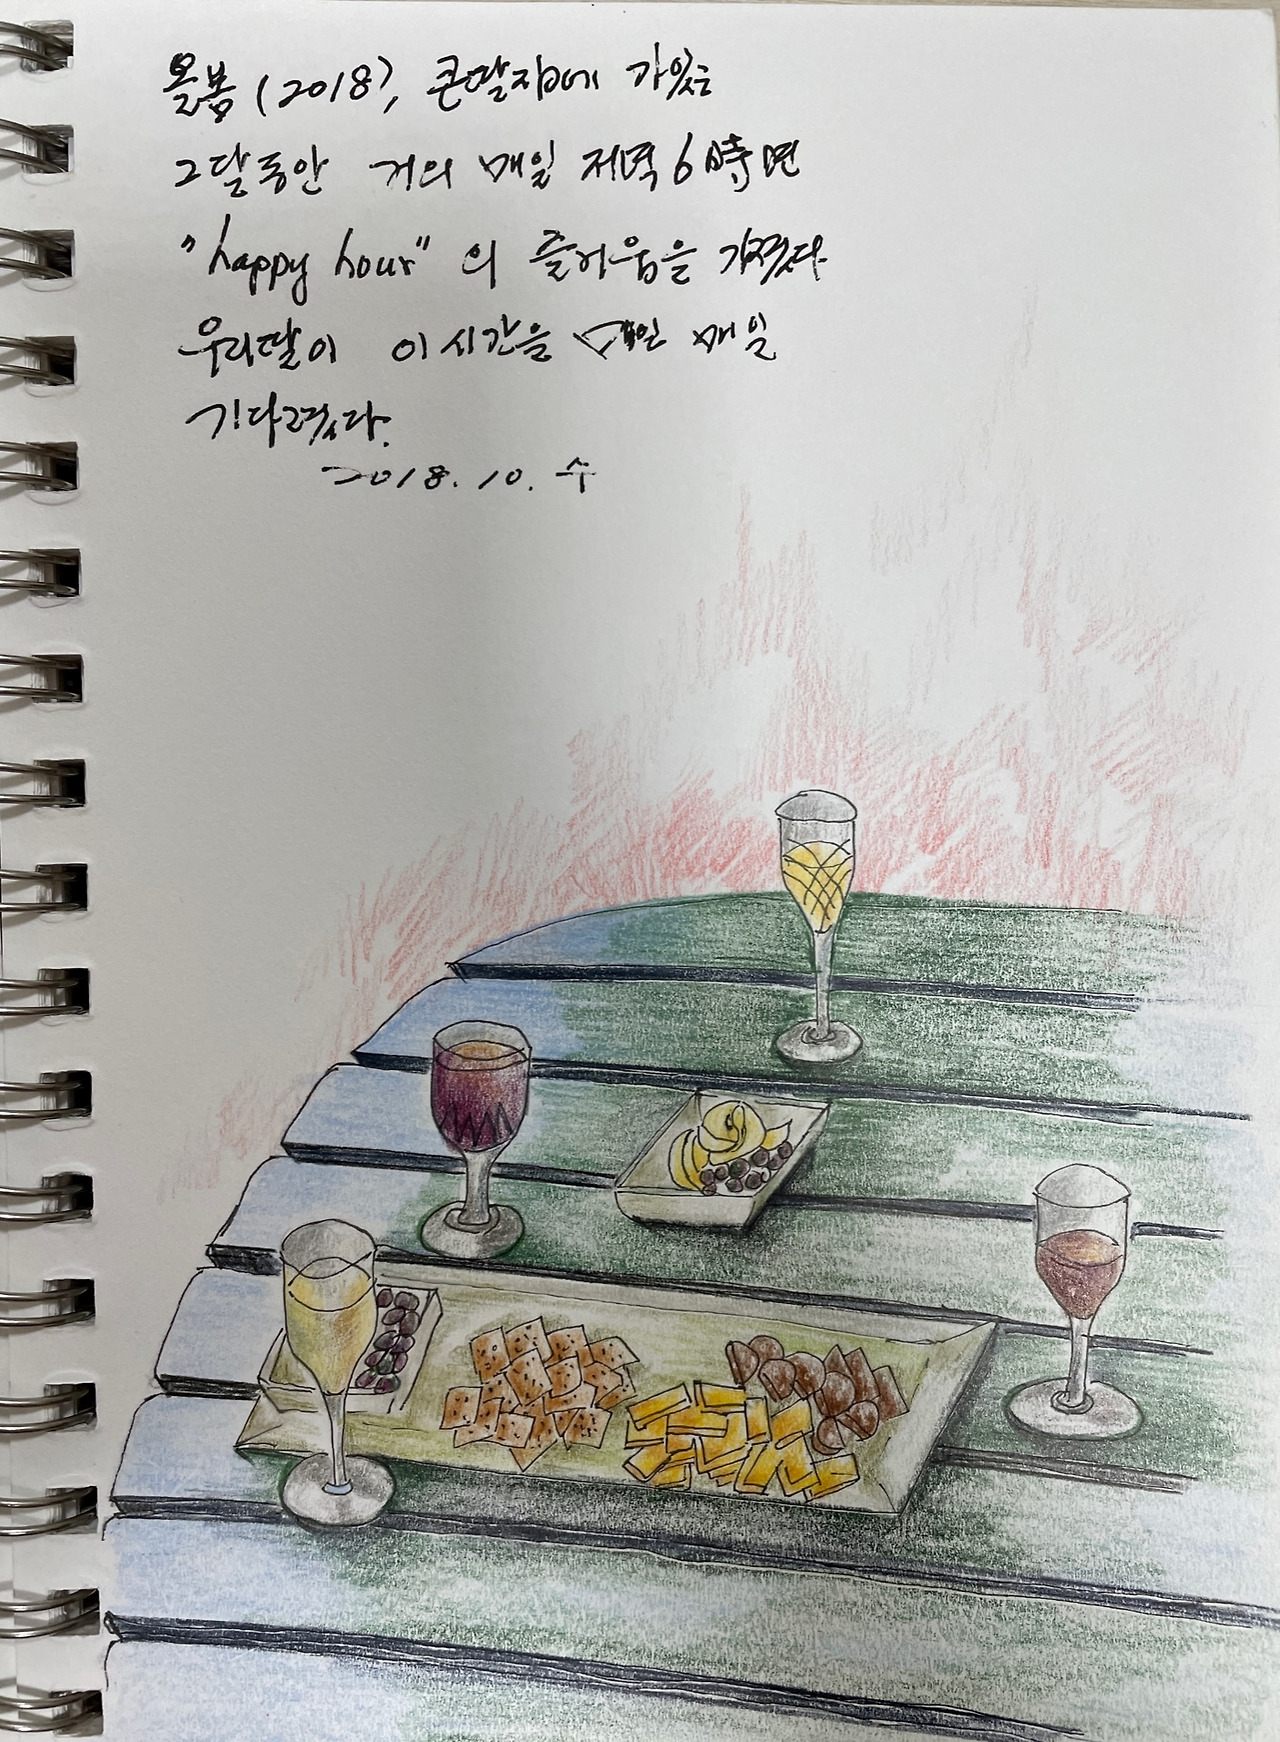 올봄 (2018), 큰딸집에 가있는
그달동안 거의 매일 저녁 6時면
"happy hour" 의 즐거움을 가졌다
우리딸이 이 시간을 매일 매일
기다렸다.
2018. 10. 수